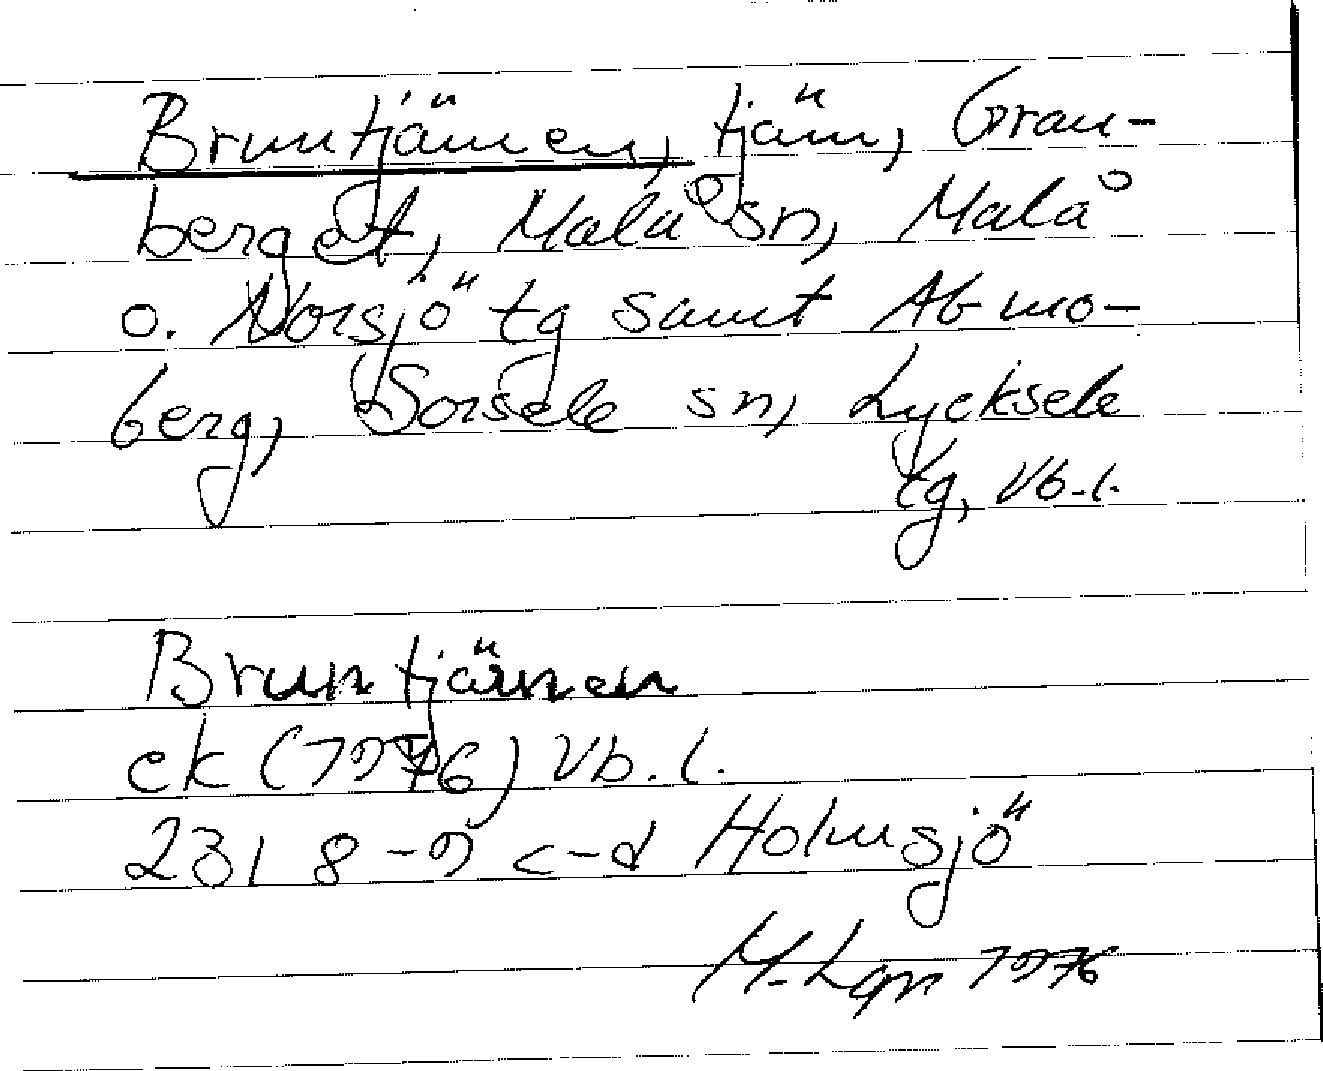 Bruntjärnen, tjärn, Gran-
berget, Malå sn, Malå
o. Norsjö tg samt Abmo-
berg, Sorsele sn, Lycksele
tg, Vb.l.
Bruntjärnen
ek (1976) Vb.l.
23I 8-9 c-d Holmsjö
M. Lgn 1976